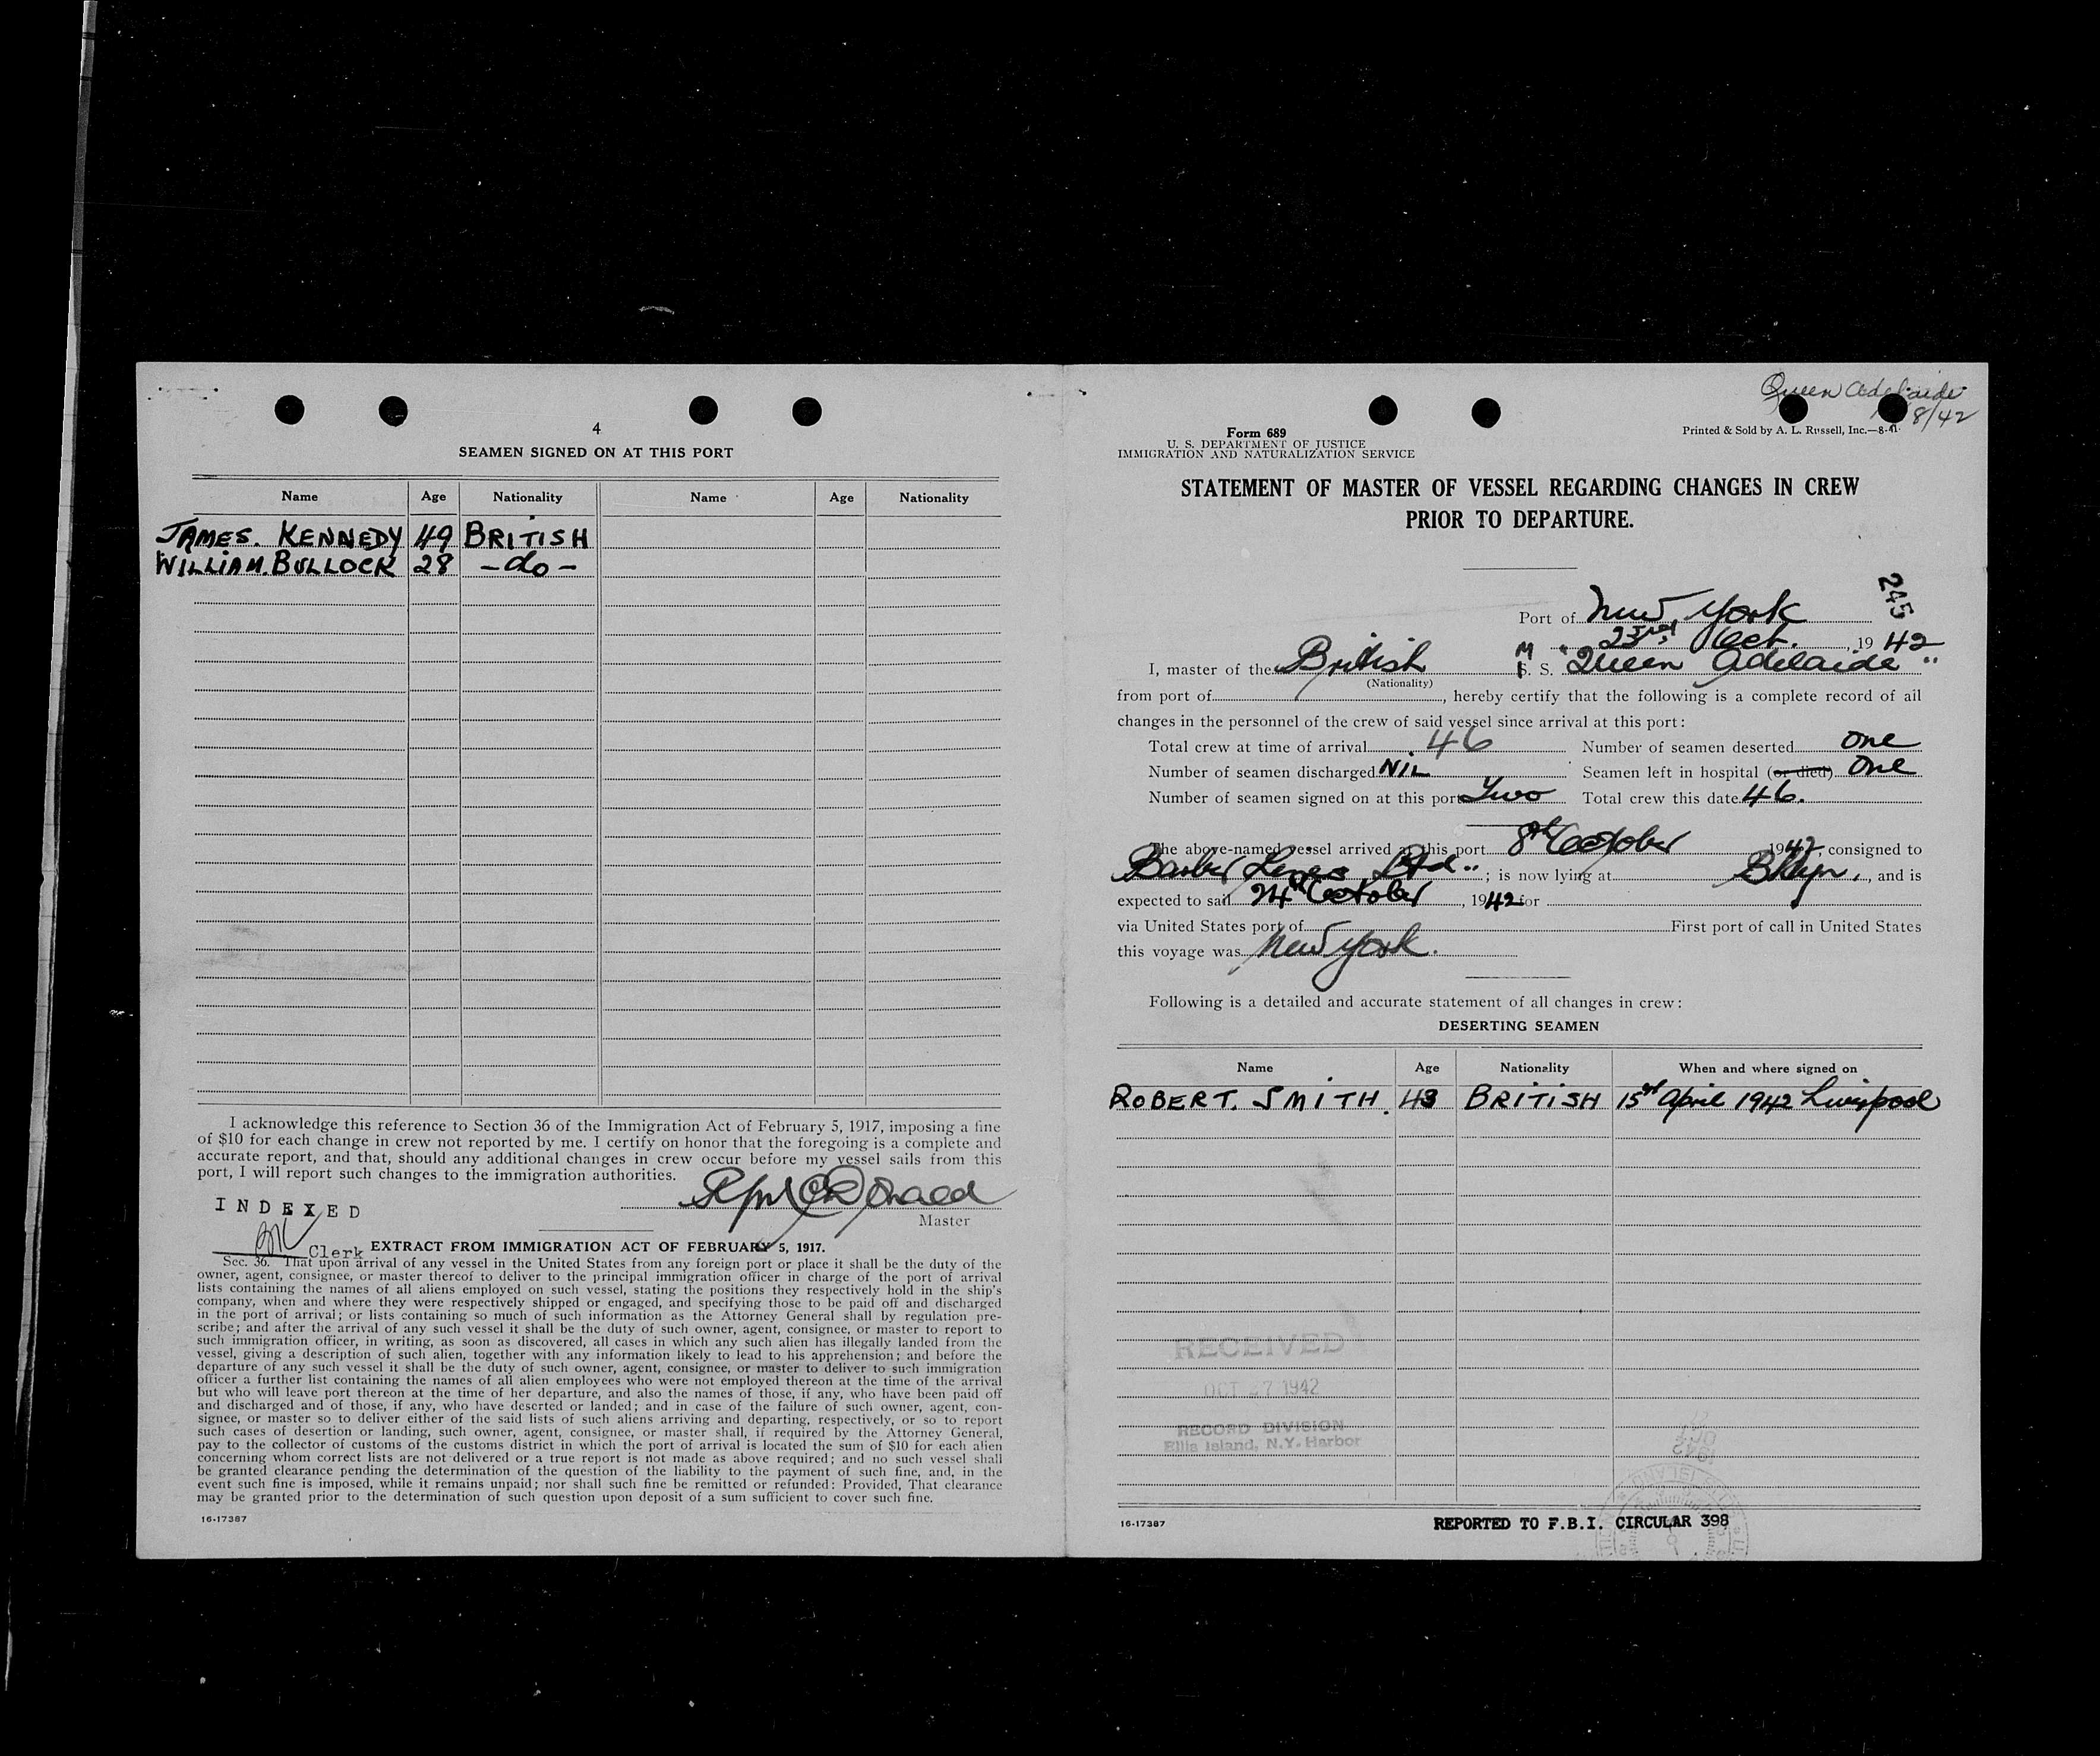 4
SEAMEN SIGNED ON AT THIS PORT
Name Age Nationality Name Age Nationality
JAMES. KENNEDY 49 BRITISH
WILLIAM. BULLOCK 28 -do-
I acknowledge this reference to Section 36 of the Immigration Act of February 5, 1917, imposing a fine
of $10 for each change in crew not reported by me. I certify on honor that the foregoing is a complete and
accurate report, and that, should any additional changes in crew occur before my vessel sails from this
port, I will report such changes to the immigration authorities.
Donald
Master
INDEXED
Clerk
EXTRACT FROM IMMIGRATION ACT OF FEBRUARY 5, 1917.
Sec. 36. That upon arrival of any vessel in the United States from any foreign port or place it shall be the duty of the
owner, agent, consignee, or master thereof to deliver to the principal immigration officer in charge of the port of arrival
lists containing the names of all aliens employed on such vessel, stating the positions they respectively hold in the ship's
company, when and where they were respectively shipped or engaged, and specifying those to be paid off and discharged
in the port of arrival; or lists containing so much of such information as the Attorney General shall by regulation pre-
scribe; and after the arrival of any such vessel it shall be the duty of such owner, agent, consignee, or master to report to
such immigration officer, in writing, as soon as discovered, all cases in which any such alien has illegally landed from the
vessel, giving a description of such alien, together with any information likely to lead to his apprehension; and before the
departure of any such vessel it shall be the duty of such owner, agent, consignee, or master to deliver to such immigration
officer a further list containing the names of all alien employees who were not employed thereon at the time of the arrival
but who will leave port thereon at the time of her departure, and also the names of those, if any, who have been paid off
and discharged and of those, if any, who have deserted or landed; and in case of the failure of such owner, agent, con-
signee, or master so to deliver either of the said lists of such aliens arriving and departing, respectively, or so to report
such cases of desertion or landing, such owner, agent, consignee, or master shall, if required by the Attorney General,
pay to the collector of customs of the customs district in which the port of arrival is located the sum of $10 for each alien
concerning whom correct lists are not delivered or a true report is not made as above required; and no such vessel shall
be granted clearance pending the determination of the question of the liability to the payment of such fine, and, in the
event such fine is imposed, while it remains unpaid; nor shall such fine be remitted or refunded: Provided, That clearance
may be granted prior to the determination of such question upon deposit of a sum sufficient to cover such fine.
16-17387
Queen Adelaide
8/42
Form 689
U. S. DEPARTMENT OF JUSTICE
IMMIGRATION AND NATURALIZATION SERVICE
Printed & Sold by A. L. Russell, Inc.—8-41
STATEMENT OF MASTER OF VESSEL REGARDING CHANGES IN CREW
PRIOR TO DEPARTURE.
245
Port of New York
23rd Oct. , 19 42
I, master of the British M S. "Queen Adelaide"
(Nationality)
from port of , hereby certify that the following is a complete record of all
changes in the personnel of the crew of said vessel since arrival at this port:
Total crew at time of arrival 46 Number of seamen deserted one
Number of seamen discharged NIL Seamen left in hospital (or died) One
Number of seamen signed on at this port Two Total crew this date 46.
The above-named vessel arrived at this port 8th October 1942, consigned to
Barber Lines Ltd.. ; is now lying at Bklyn. , and is
expected to sail 24th October , 1942 for
via United States port of First port of call in United States
this voyage was New York.
Following is a detailed and accurate statement of all changes in crew:
DESERTING SEAMEN
Name Age Nationality When and where signed on
ROBERT. SMITH. 43 BRITISH 15th April 1942 Liverpool
RECEIVED
OCT 27 1942
RECORD DIVISION
Ellis Island, N.Y. Harbor
OCT
1942
16-17387
REPORTED TO F.B.I. CIRCULAR 398